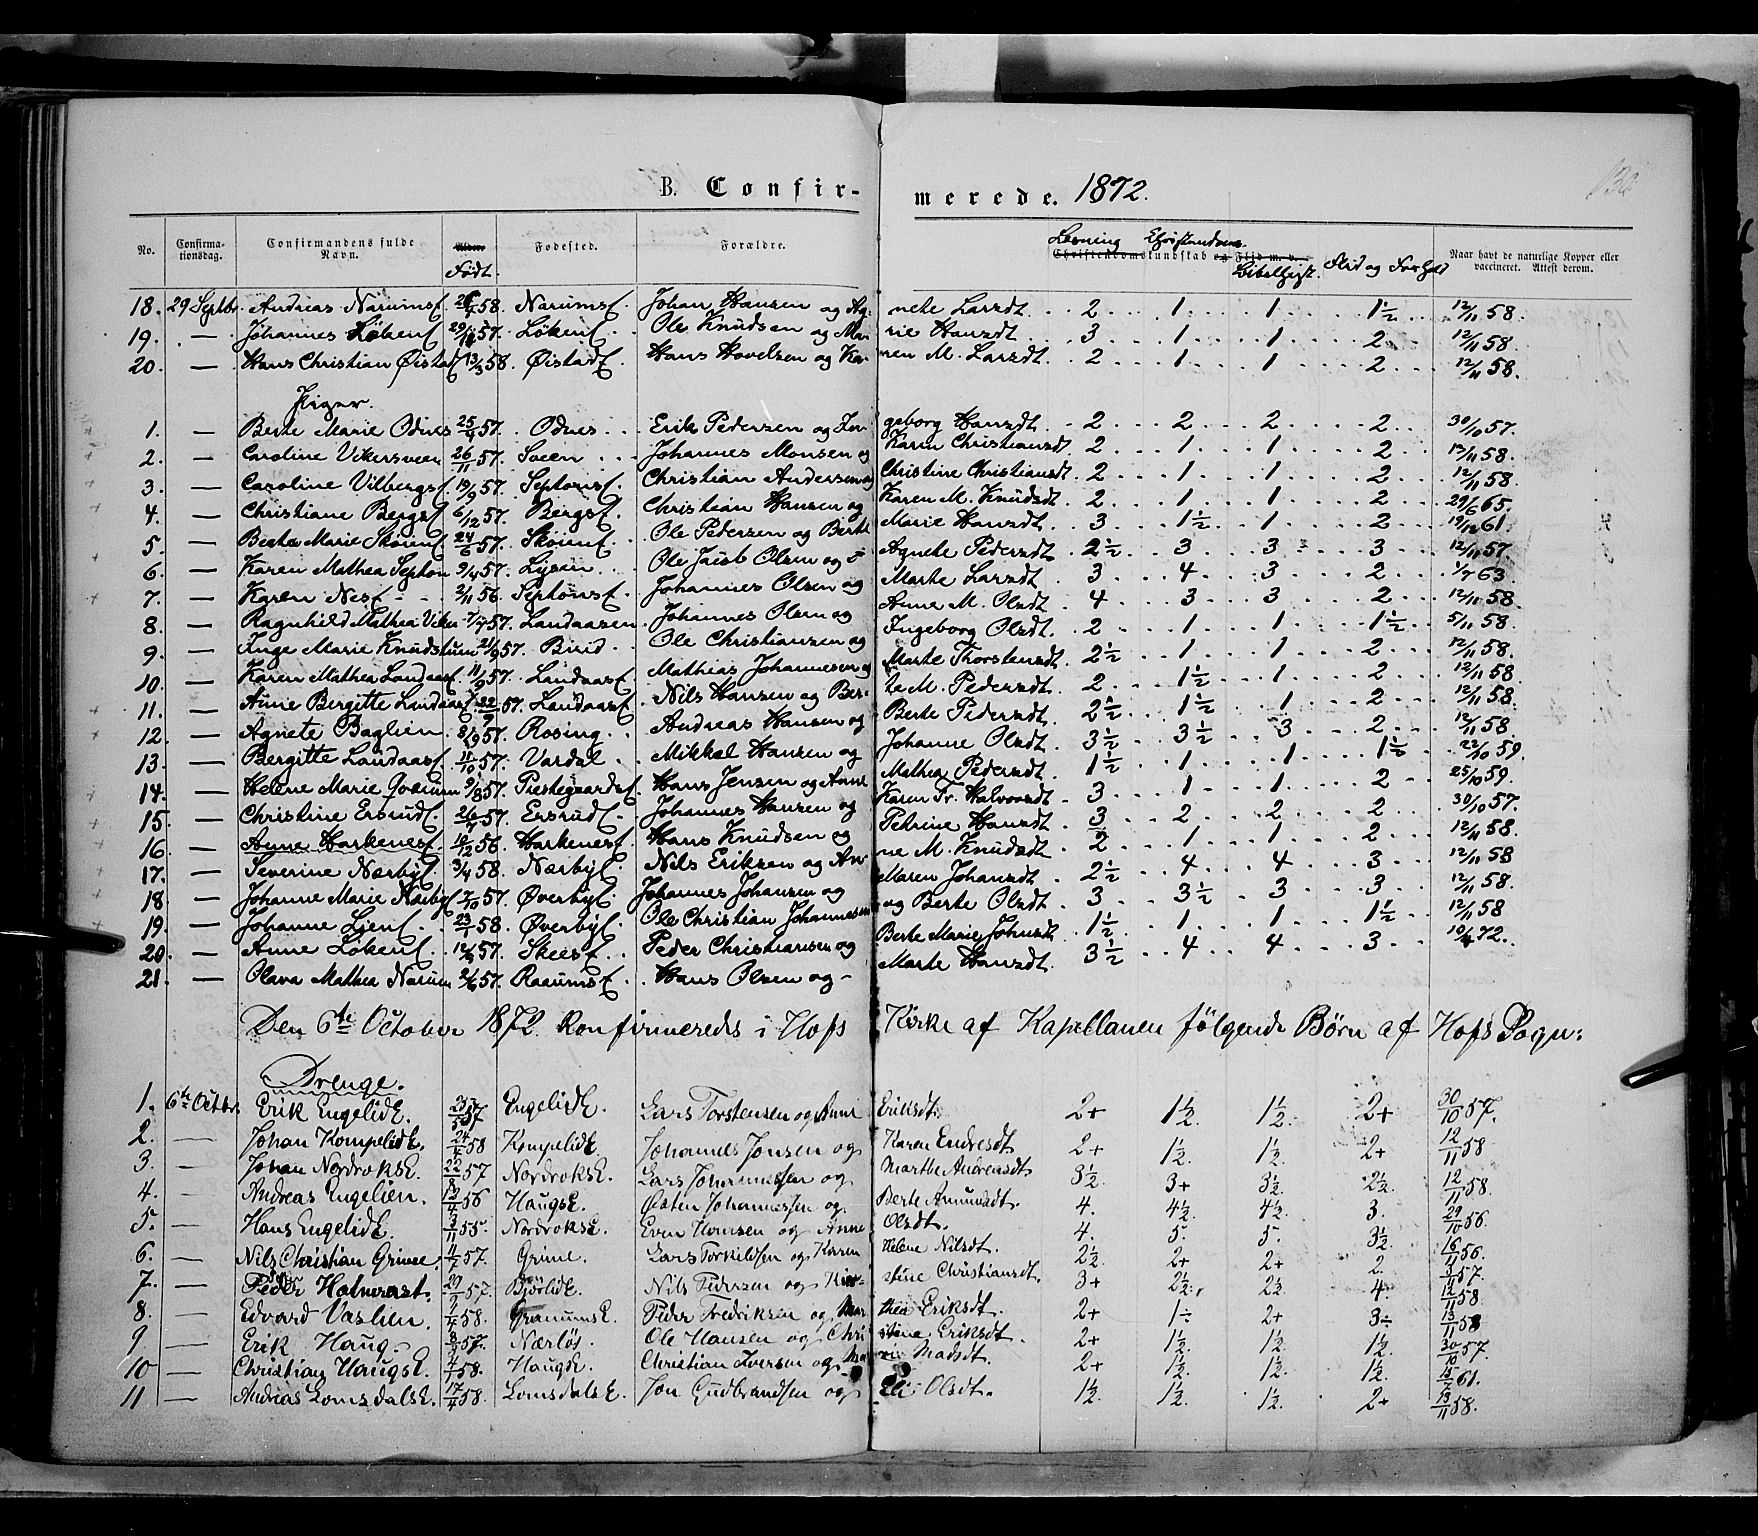 B. Confir-merede. 1872.
No. Confirmationsdag. Confirmandens fulde Navn. Alder. Født. Fødested. Forældre. Læsning Christendomskundskab og Flid m. v. Bibelhist. Flid og Forhold Naar havt de naturlige Kopper eller vaccineret. Attest derom.
18. 29 Septbr. Andreas Narumsf. 58. Narumsf. Johan Hansen og Agnete Larsdt. 2 1 1 1½ 12/11 58.
19. — Johannes Løkenf. 57. Løkenf. Ole Knudsen og Marie Hansdt. 3 1 1 2 12/11 58.
20. — Hans Christian Øistadf. 13/3 58. Øistadf. Hans Hovelsen og Karen M. Larsdt. 2 1 1 2 12/11 58.
Piger.
1. — Berte Marie Odnes 25/4 57. Odnes Erik Pedersen og Ingeborg Hansdt. 2 2 2 2 30/10 57.
2. — Caroline Vikersveen 26/11 57. Sveen Johannes Monsen og Karen Christiansdt. 2 1 1 2 12/11 58.
3. — Caroline Vilbergsf. 19/9 57. Septonsf. Christian Andersen og Christine Christiansdt. 2 1 1 2 12/11 58.
4. — Christiane Bergsf. 6/12 57. Bergsf. Christian Hansen og Karen M. Knudsdt. 2 1 1 2 29/6 65.
5. — Berte Marie Skøienf. 24/6 57. Skøienf. Ole Pedersen og Berte Marie Hansdt. 3 1½ 1 2 19/12 61.
6. — Karen Mathea Septon 9/4 57. Lysen Ole Jacob Olsen og Agnete Pedersdt. 2½ 3 3 3 12/11 57.
7. — Karen Nesf. 2/11 56. Septonsf. Johannes Olsen og Marte Larsdt. 3 4 3 2 1/7 63.
8. — Ragnhild Mathea Viken 57. Landaasen Johannes Olsen og Anne M. Olsdt. 4 3 3 2 12/11 58.
9. — Inge Marie Knudstuen 21/9 57. Birid Ole Christiansen og Ingeborg Olsdt. 2 1 1 1½ 5/11 58.
10. — Karen Mathea Landaasf. 11/9 57. Landaasf. Mathias Johannesen og Marte Thorstensdt. 2½ 1 1 2 12/11 58.
11. — Anne Bergitte Landaasf. 22/9 57. Landaasf. Nils Hansen og Berte M. Pedersdt. 2 1½ 1 2 12/11 58.
12. — Agnete Baglien 57. Rosing Andreas Hansen og Berte Pedersdt. 2½ 1½ 1 2 12/11 58.
13. — Bergitte Landaasf. 11/10 57. Vardal Mikkel Hansen og Johanne Olsdt. 3½ 3½ 3 2 12/11 58.
14. — Helene Marie 9/8 57. Prestegaardsf. Hans Jensen og Anne Mathea Pedersdt. 1½ 1 1 1½ 22/10 59.
15. — Christine Ersrudf. 57. Ersrudf. Johannes Hansen og Karen Fr. Halvorsdt. 3 1 1 2 25/10 59.
16. — Anne Harkenesf. 56. Harkenesf. Hans Knudsen og Petrine Hansdt. 3 2 2 2 30/10 57.
17. — Severine Nærbyf. 3/4 58. Nærbyf. Nils Eriksen og Anne M. Knudsdt. 2 1 1 2 12/11 58.
18 — Johanne Marie Nærbyf. 57. Øverbyf. Johannes Johansen og Maren Johansdt. 2½ 4 4 3 12/11 58
19. — Johanne Lienf. 23/1 58. Øverbyf. Ole Christian Johannesen og Berte Olsdt. 3 3½ 3 3 12/11 58.
20. — Anne Løkenf. 57. Skeesf. Peder Christiansen og Berte Marie Johnsdt. 1½ 1 1 1½ 12/11 58
21. — Olava Mathea Narum 57. Raaumsf. Hans Olsen og Marte Hansdt. 3½ 4 4 3 72.
Den 6te October 1872 konfirmeredes i Hofs Kirke af Kapellanen følgende Børn af Hofs Sogn:
Drenge.
1. 6te Octbr. Erik EngelidE. 57 EngelidE. Lars Torstensen og Anne Eriksdt. 2+ 1½ 1½ 2+ 30/10 57.
2. — Johan KompelidE. 24/4 58 KompelidE. Johannes Jonsen og Karen Endresdt. 2+ 1½ 1½ 2+ 12/11 58
3. — Johan NordroksE. 22/8 57 NordroksE. Lars Johannessen og Marthe Andreasdt. 3½ 3+ 3½ 2½ 12/11 58.
4. — Andreas Engelien. 56 HaugsE. Østen Johannessen og Berte Amundsdt. 4. 4½ 4½ 3. 29/10 56.
5. — Hans EngelidE. 3/11 55. NordroksE. Even Hansen og Anne Olsdt. 4. 5. 5. 3½ 16/11 56.
6. — Nils Christian Grime. 11/7 57. Grime. Lars Torkildsen og Karen Helene Nilsdt. 2½ 2+ 2+ 2. 57.
7. — Peder Halmrast. 57. BjørlidE. Nils Pedersen og Kirstine Christiansdt. 3+ 2½ 2½ 4. 12/11 58.
8. — Edvard Vaslien. 58. GranumsE. Peder Fredriksen og Marthea Eriksdt. 2+ 1÷ 2+ 3÷ 13/11 58
9 — Erik Haug. 57. Nærløs Ole Hansen og Christine Eriksdt. 2+ 1½ 1½ 1½. 30/10 57.
10 — Christian HaugsE. 58. HaugsE. Christian Iversen og Mari Madsdt. 2+ 1½ 1½ 1½. 61.
11 — Andreas LomsdalsE. 17/4 58. LomsdalsE. Jon Gudbrandsen og Eli Olsdt. 1½ 1½ 1½ 2+ 13/11 58.